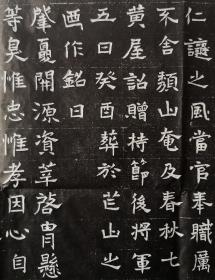 仁讓之風當官奉職厲
不舍頹山奄及春秋七
黃屋詔贈持節後將軍
五日癸酉葬於芒山之
西作銘曰
肇疉開源資莘啓胄懸
等昊惟忠惟孝因心自